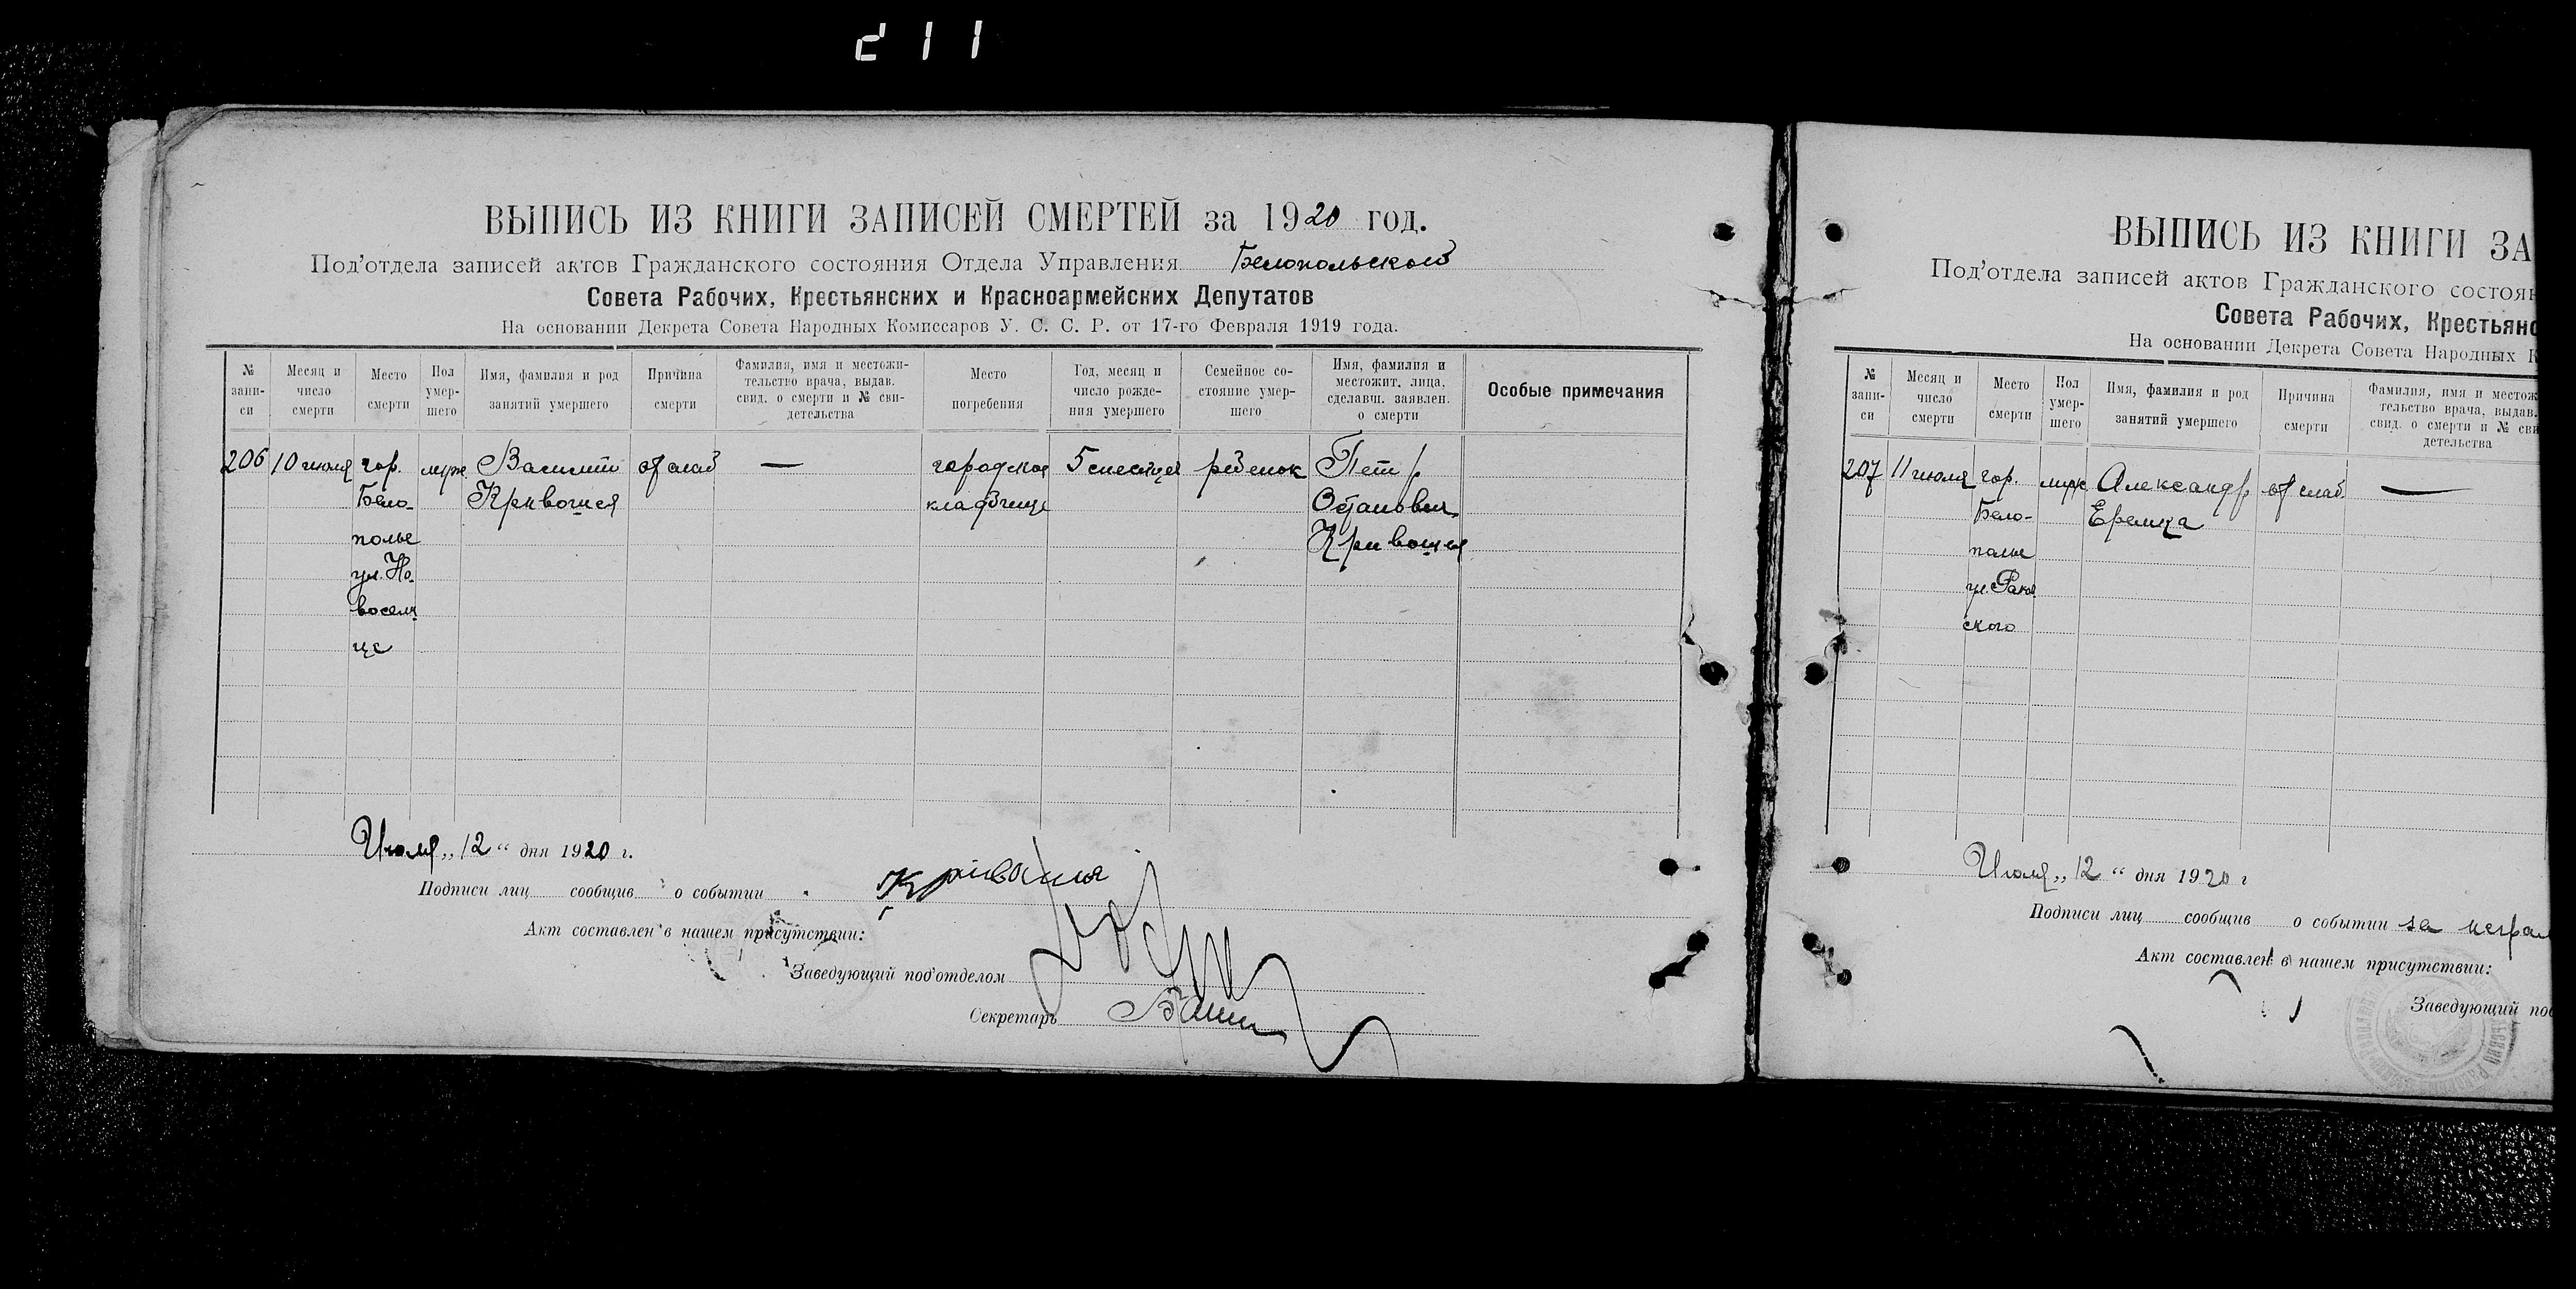 211
ВЫПИСЬ ИЗ КНИГИ ЗАПИСЕЙ СМЕРТЕЙ за 1920 год.
Под'отдела записей актов Гражданского состояния Отдела Управления Белопольской
Совета Рабочих, Крестьянских и Красноармейских Депутатов
На основании Декрета Совета Народных Комиссаров У. С. С. Р. от 17-го Февраля 1919 года.
№ запи-си
Месяц и число смерти
Место смерти
Пол умер-шего
Имя, фамилия и род занятий умершего
Причина смерти
Фамилия, имя и местожи-тельство врача, выдав. свид. о смерти и № сви-детельства
Место погребения
Год, месяц и число рожде-ния умершего
Семейное со-стояние умер-шего
Имя, фамилия и местожит. лица, сделавш. заявлен. о смерти
Особые примечания
206 10 июля гор. муж Василий от слаб — городское 5 месяцев ребенок Петр
Бело- Кривошея кладбище
полье Кривошея
ул. Но-
восели
це
Июля „12“ дня 1920 г.
Подписи лиц сообщив о событии Кривошея
Акт составлен в нашем присутствии:
Заведующий под'отделом
Секретарь
ВЫПИСЬ ИЗ КНИГИ ЗА
Под'отдела записей актов Гражданского состоян
Совета Рабочих, Крестьянс
На основании Декрета Совета Народных К
№ запи-си
Месяц и число смерти
Место смерти
Пол умер-шего
Имя, фамилия и род занятий умершего
Причина смерти
Фамилия, имя и местож тельство врача, выдав. свид. о смерти и № сви детельства
207 11 июля гор. муж Александр от слаб. —
Бело-
полье
ул. Раков
ского
Июля „12“ дня 1920 г
Подписи лиц сообщив о событии за неграм
Акт составлен в нашем присутствии:
Заведующий под